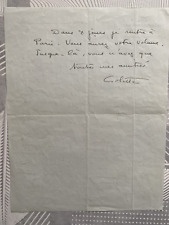 Dans 8 jours je rentre à
Paris. Vous aurez votre volume.
Jusque-là, vous n'avez que
toutes mes amitiés
Colette